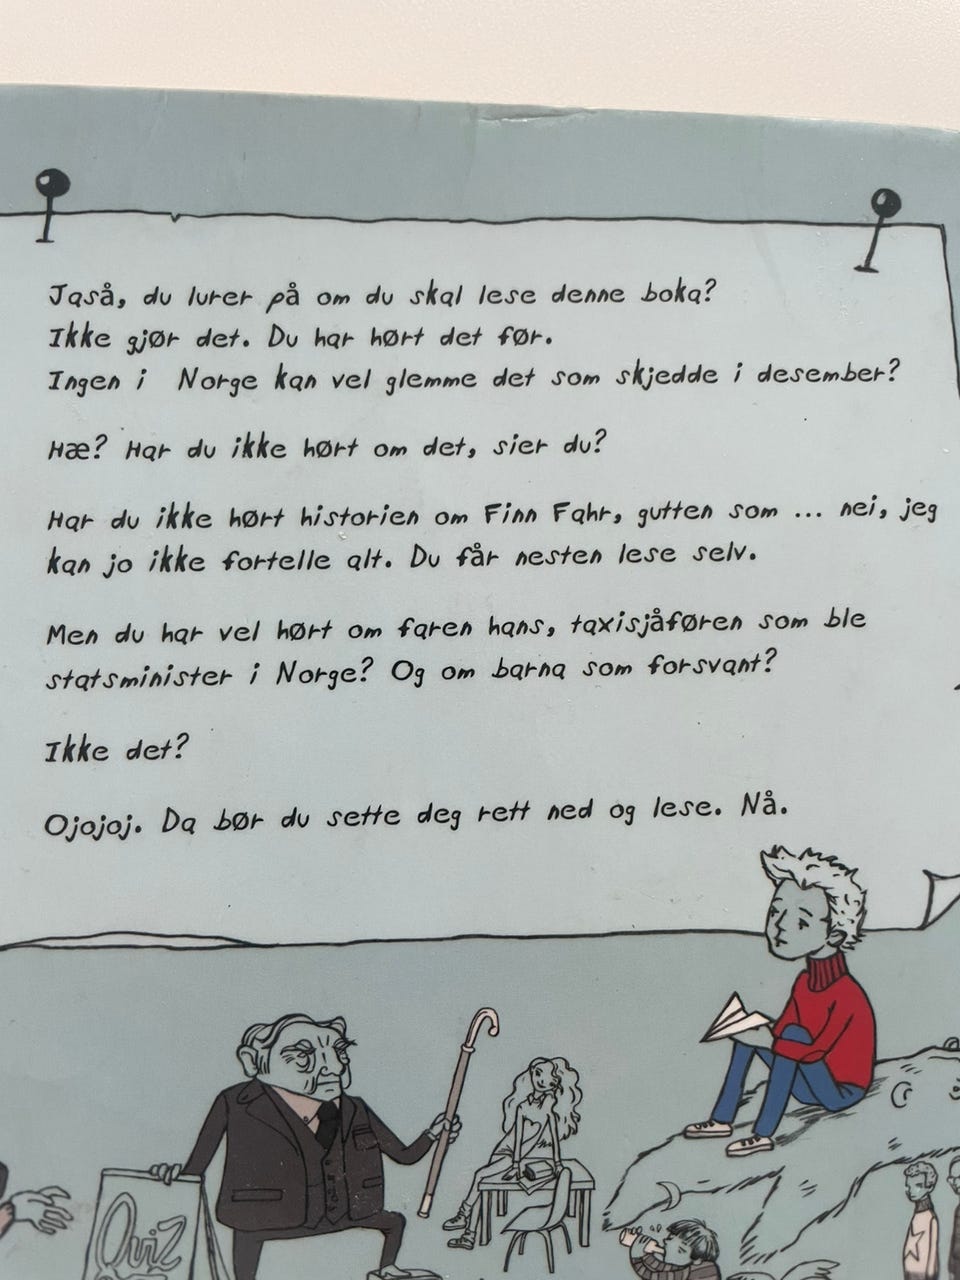 Jaså, du lurer på om du skal lese denne boka?
Ikke gjør det. Du har hørt det før.
Ingen i Norge kan vel glemme det som skjedde i desember?
Hæ? Har du ikke hørt om det, sier du?
Har du ikke hørt historien om Finn Fahr, gutten som ... nei, jeg
kan jo ikke fortelle alt. Du får nesten lese selv.
Men du har vel hørt om faren hans, taxisjåføren som ble
statsminister i Norge? Og om barna som forsvant?
Ikke det?
Ojojoj. Da bør du sette deg rett ned og lese. Nå.
Quiz